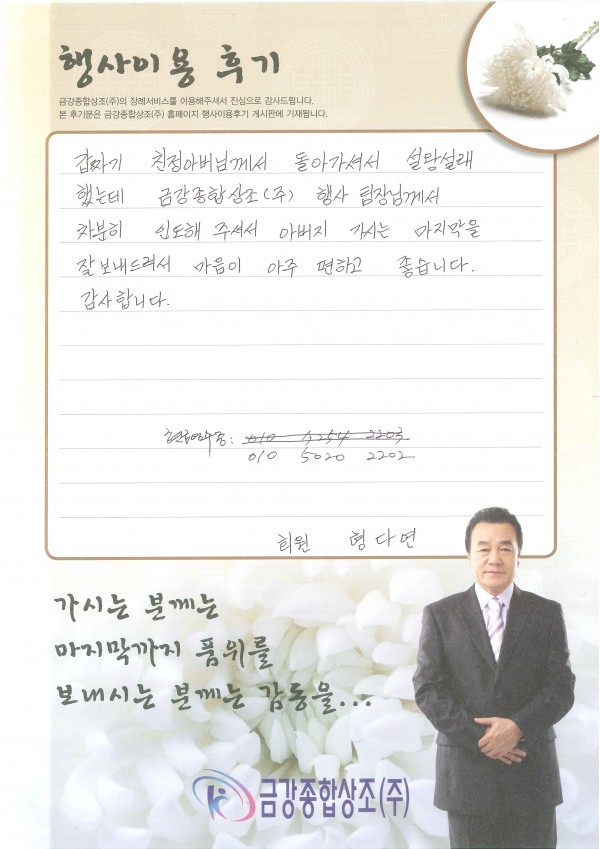 행사이용 후기
금강종합상조(주)의 장례서비스를 이용해주셔서 진심으로 감사드립니다.
본 후기문은 금강종합상조(주) 홈페이지 행사이용후기 게시판에 기재됩니다.
갑짜기 친정아버님께서 돌아가셔서 설왕설래
했는데 금강종합상조(주) 행사 팀장님께서
차분히 인도해 주셔서 아버지 가시는 마지막을
잘 보내드려서 마음이 아주 편하고 좋습니다.
감사합니다.
010 5020 2202
회원 형다연
가시는 분께는
마지막까지 품위를
보내시는 분께는 감동을...
금강종합상조(주)